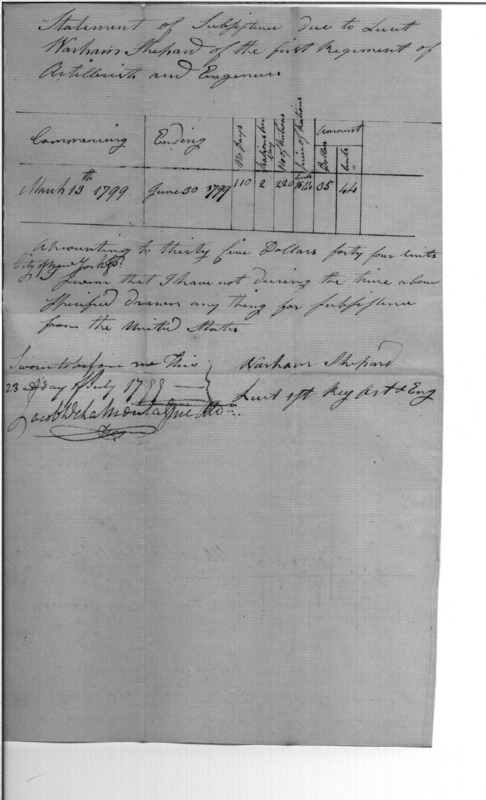 Statement of Subsistence due to Lieut
Warham Shepard of the first Regiment of
Artillerists and Engineers
Commencing Ending No Days Rations per Day No of Rations price of Rations Amount
Dollars Cents
March 13th 1799 June 30 1799 110 2 220 35 44
Amounting to thirty five Dollars forty four Cents
City of New York Ss.
I swear that I have not during the time above
specified drawn any thing for subsistence
from the United States
Sworn to before me this
23 day of July 1799
Warham Shepard
Lieut 1st Reg Art & Eng
Jacob De La Montagnie